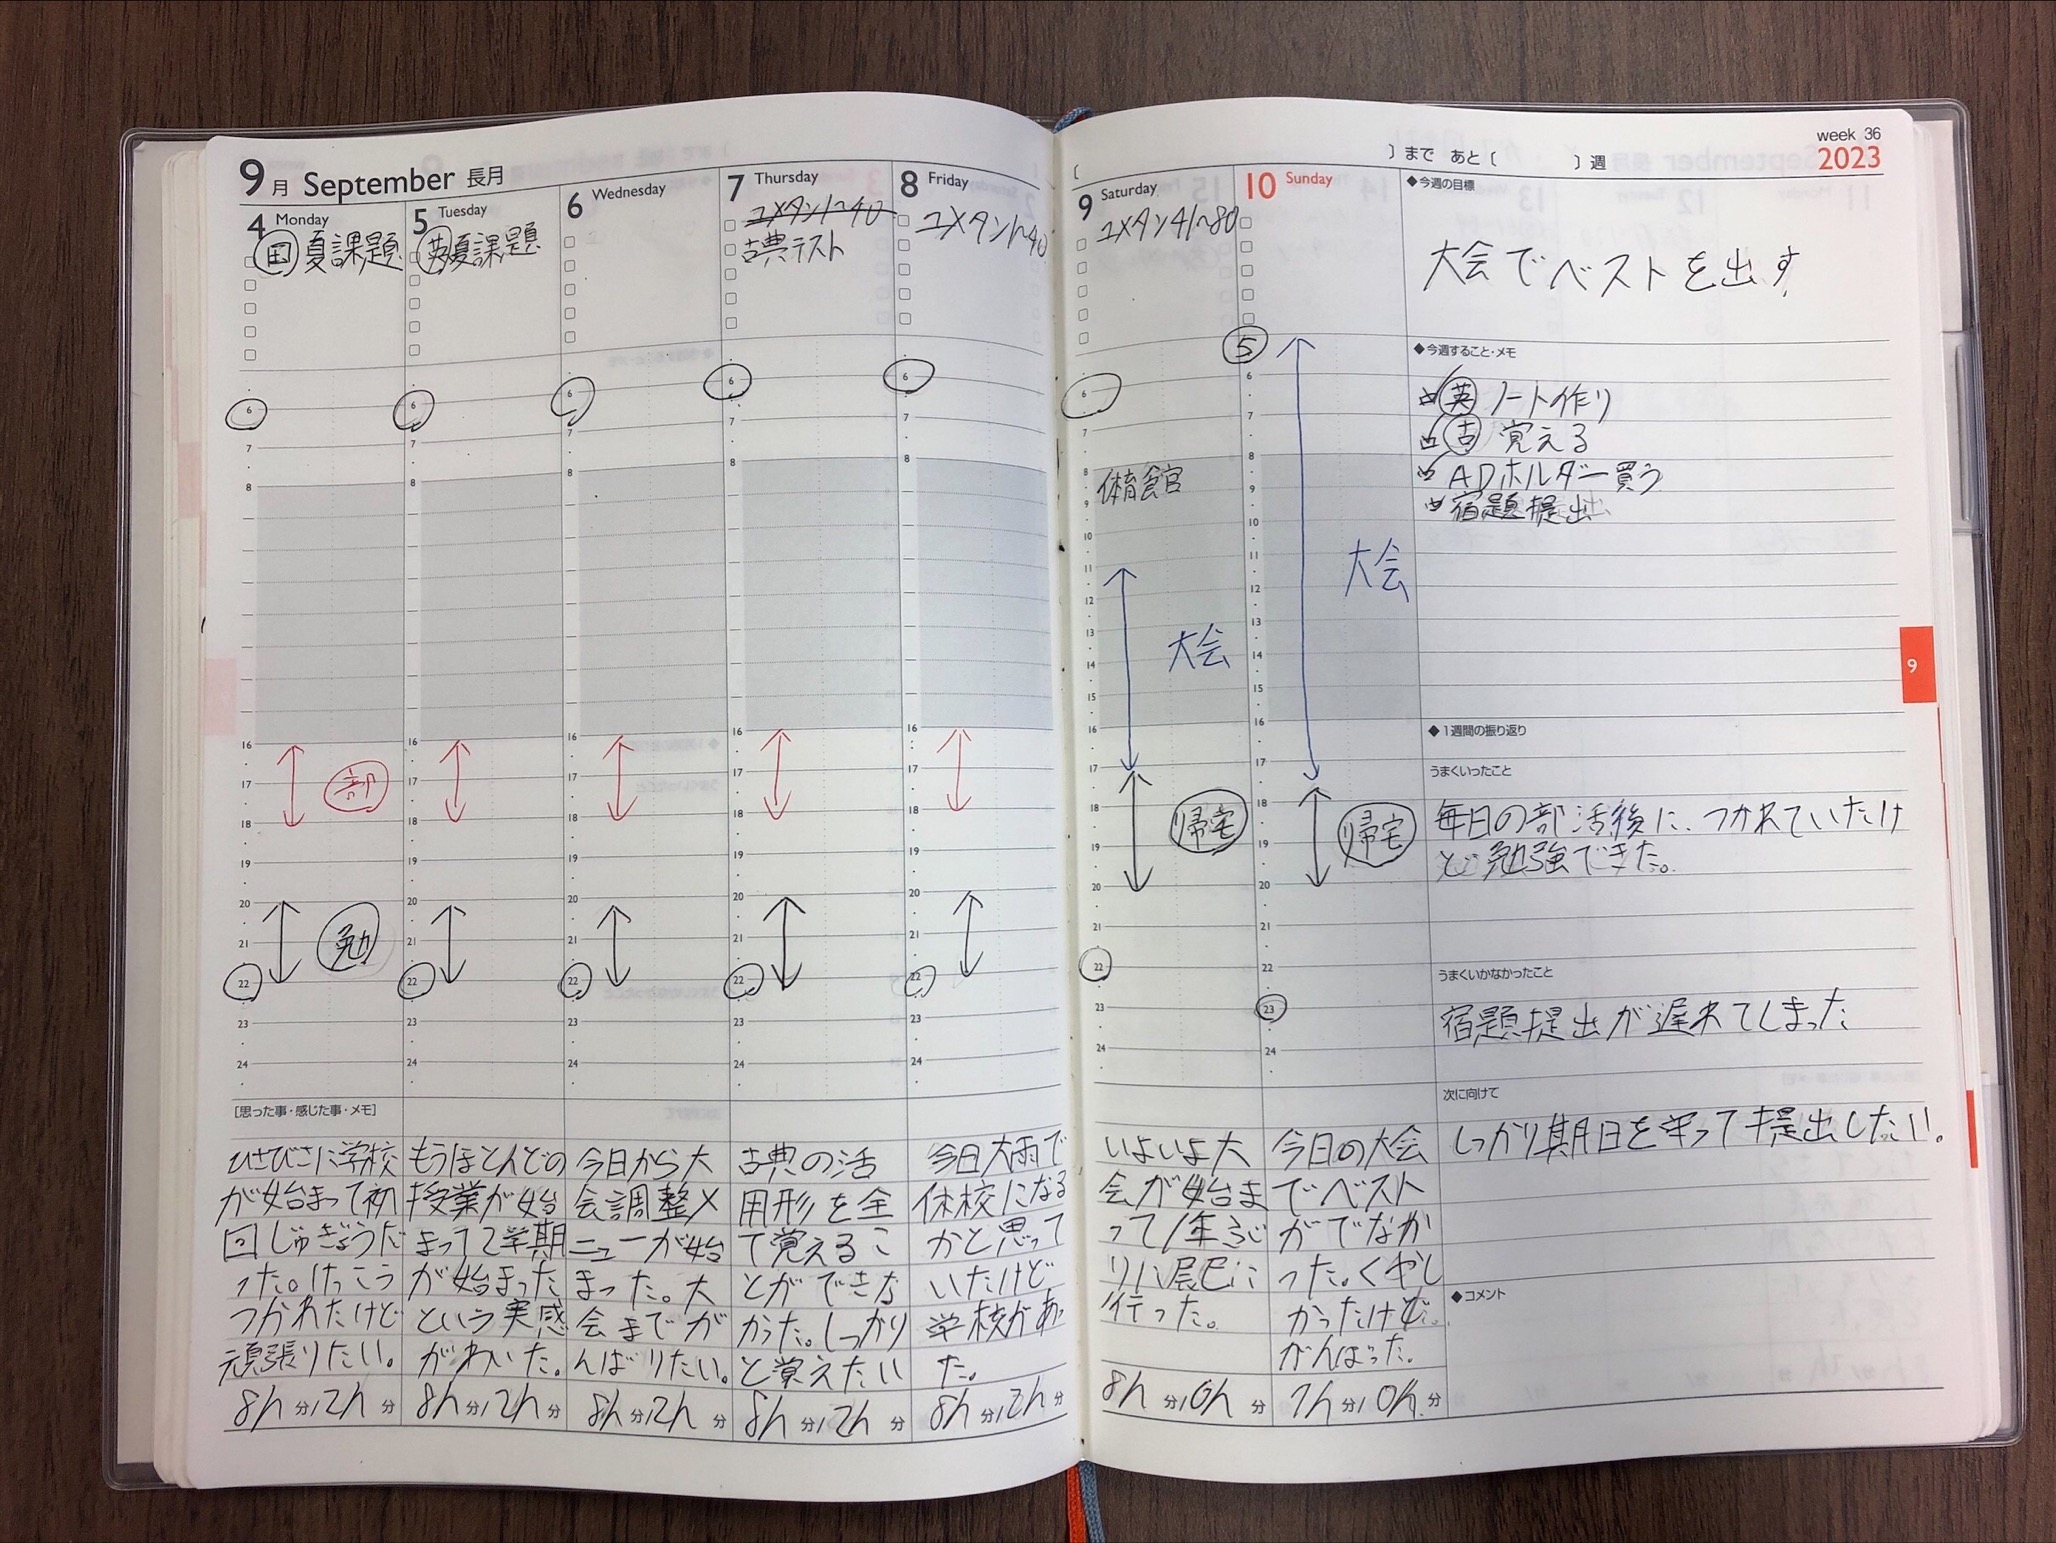 9月 September 長月
4 Monday
国 夏課題
5 Tuesday
英 夏課題
6 Wednesday
7 Thursday
ユメタン1~40
古典テスト
8 Friday
ユメタン1~40
[ ]まで あと[ ]週
week 36
2023
9 Saturday
ユメタン41~80
10 Sunday
◆今週の目標
大会でベストを出す
◆今週すること・メモ
英 ノート作り
古 覚える
ADホルダー買う
宿題提出
5
6
7
8
体育館
9
10
11
12
13
14
15
16
17
18
19
20
21
22
23
24
大会
大会
部
勉
帰宅
帰宅
9
◆1週間の振り返り
うまくいったこと
毎日の部活後に、つかれていたけ
ど勉強できた。
うまくいかなかったこと
宿題提出が遅れてしまった
次に向けて
しっかり期日を守って提出したい。
◆コメント
[思った事・感じた事・メモ]
ひさびさに学校
が始まって初
回じゅぎょうだ
った。けっこう
つかれたけど
頑張りたい。
8h 分/2h 分
もうほとんどの
授業が始
まって2学期
が始まった
という実感
がわいた。
8h 分/2h 分
今日から大
会調整メ
ニューが始
まった。大
会までが
んばりたい。
8h 分/2h 分
古典の活
用形を全
て覚えるこ
とができな
かった。しっかり
と覚えたい
8h 分/2h 分
今日大雨で
休校になる
かと思って
いたけど
学校があっ
た。
8h 分/2h 分
いよいよ大
会が始ま
って1年ぶ
りに
行った。
8h 分/0h 分
今日の大会
でベスト
がでなか
った。くやし
かったけど。
がんばった。
7h 分/0h 分